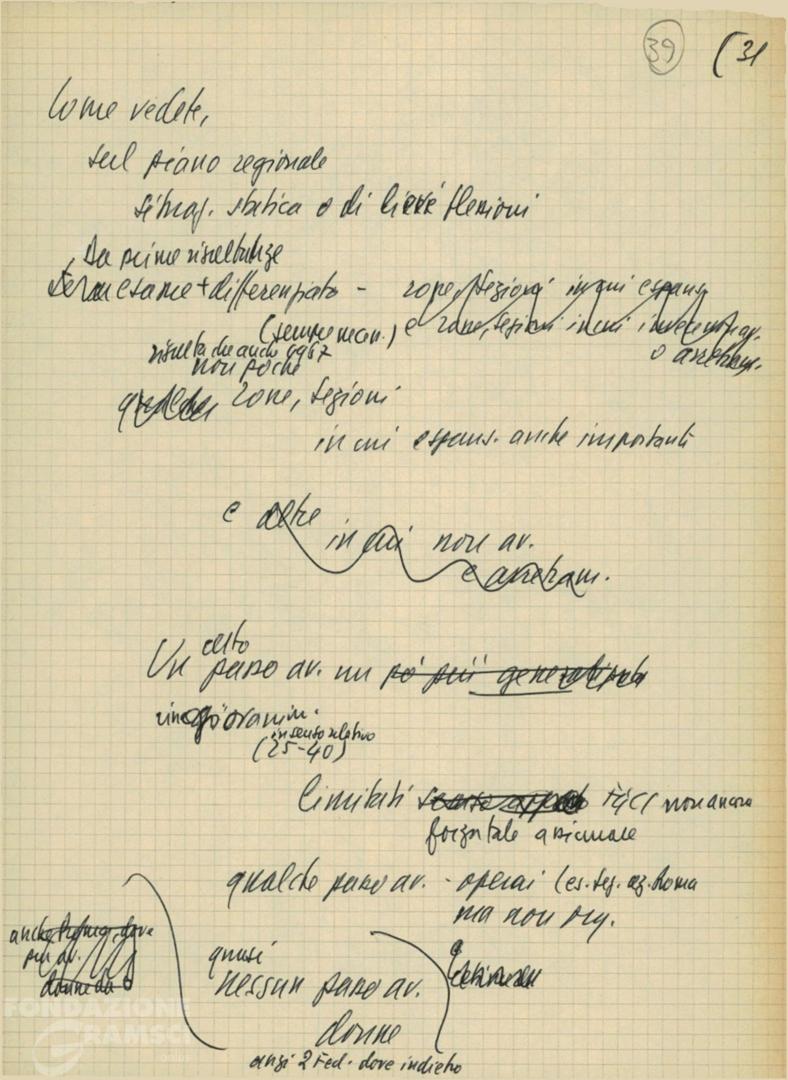 39 (31
Come vedete,
sul piano regionale
situaz. statica o di lievi flessioni
Da prime risultanze
esame + differenziato - zone, sezioni in cui espans.
(sempre meno.) e zone, sezioni in cui invece
o arretram.
risulta che anche 1967
non poche
qualche zone, sezioni
in cui espans. anche importanti
e altre
in cui non av.
e arretram.
certo
Un passo av. un po' più generalizzato
ringiovanim.
in senso relativo
(25-40)
limitati FGCI non ancora
forza tale assicurare
qualche passo av. - operai (es. sez. az. Roma
ma non org.
anche dove
più av.
donne da
quasi
nessun passo av.
donne
anzi 2 Fed. dove indietro
FONDAZIONE
GRAMSCI